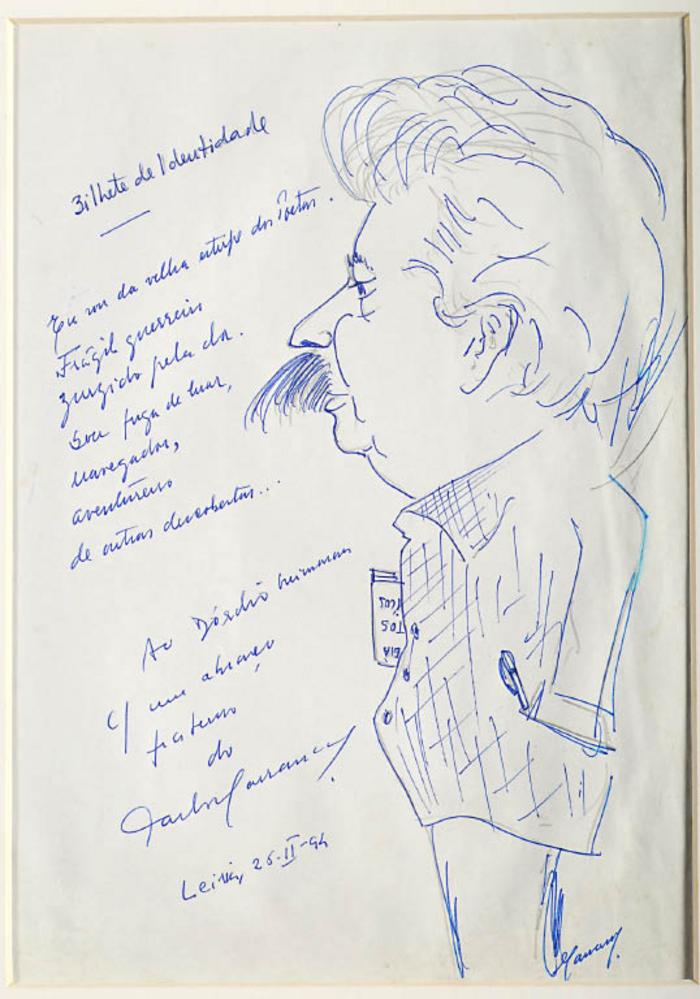 Bilhete de Identidade
Eu sou da velha estirpe dos Poetas.
Frágil guerreiro
zurzido pela dor.
Sou fuga de luar,
navegador,
aventureiro
de outras descobertas...
Ao Dósdio Guimarães
C/ um abraço
fraterno
do
Carlos Carranca
Leiria, 26-II-94
ICOS
TOS